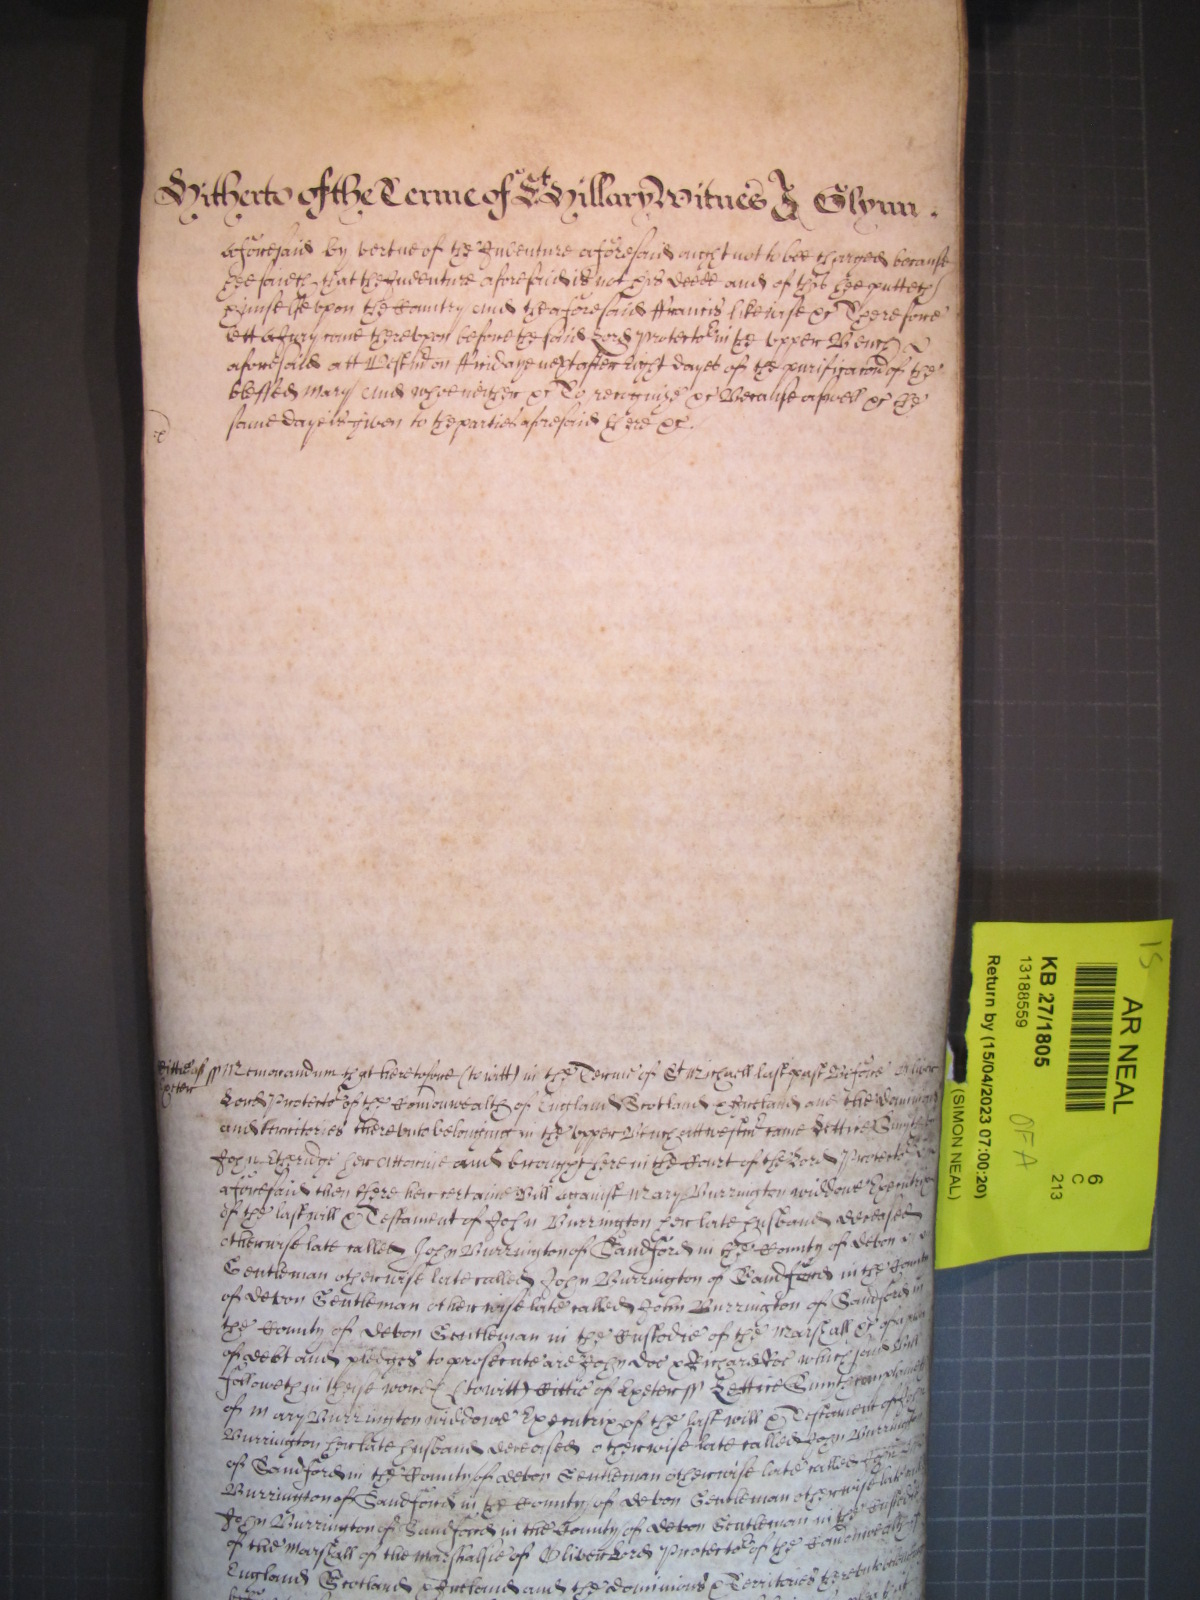 Hitherto of the Terme of St Hillary Witnes J Glynn.
aforesaid by vertue of the Indenture aforesaid ought not to bee charged because
hee saieth that the Indenture aforesaid is not his deede and of this hee putteth
himselfe upon the Country and the aforesaid ffrancis likewise &c Therefore
lett a Jury come thereupon before the said Lord Protector in the upper Bench
aforesaid att Westm on ffridaye next after Eight dayes of the purificacon of the
blessed Mary And who neither &c To recognize &c Because aswell &c the
same daye is given to the parties aforesaid there &c.
Cittie of Exeter ss Memorandum that heretofore (to witt) in the Terme of St Michaell last past Before Oliver
Lord Protector of the Comonwealth of England Scotland & Ireland and the Dominions
and territories thereunto belonging in the upper Bench att westm came Lettice Smyth by
John Etheridge her Attornie and brought here in the Court of the Lord Protector
aforesaid then there her certaine Bill against Mary Burrington widdowe Executrix
of the last will & Testament of John Burrington her late husband deceased
otherwise late called John Burrington of Sandford in the County of Devon
Gentleman otherwise late called John Burrington of Sandford in the County
of Devon Gentleman otherwise late called John Burrington of Sandford in
the County of Devon Gentleman in the Custodie of the Marshall &c of a plea
of debt and pledges to prosecute are John Doe & Richard Roe which said Bill
followeth in theise words (to witt) Cittie of Exeter ss Lettice Smyth complaineth
of Mary Burrington widdowe Executrix of the last will & Testament of John
Burrington her late husband deceased otherwise late called John Burrington
of Sandford in the County of Devon Gentleman otherwise late called John
Burrington of Sandford in the County of Devon Gentleman otherwise late called
John Burrington of Sandford in the County of Devon Gentleman in the Custodie
of the Marshall of the Marshalsie of Oliver Lord Protector of the Comonwealth of
England Scotland & Ireland and the Dominions & Territories thereunto belonging
AR NEAL
6
C
213
KB 27/1805
13188559
Return by (15/04/2023 07:00:20)
(SIMON NEAL)
OFA
15